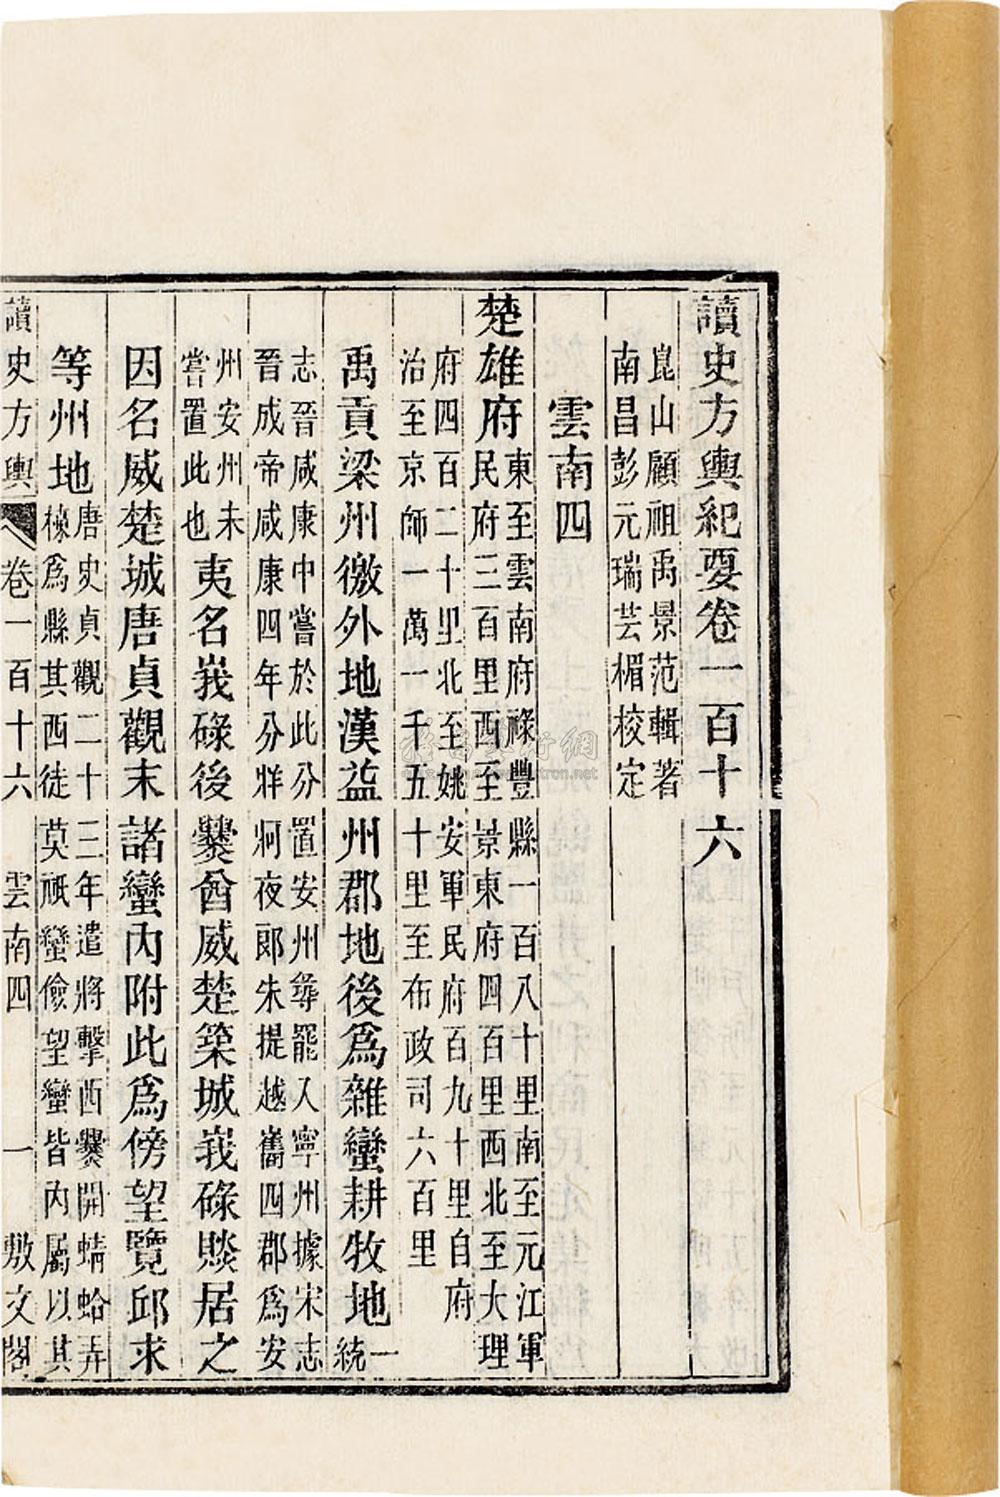 讀史方輿紀要卷一百十六
崑山顧祖禹景范輯著
南昌彭元瑞芸楣校定
雲南四
楚雄府東至雲南府祿豐縣一百八十里南至元江軍
民府三百里西至景東府四百里西北至大理
府四百二十里北至姚安軍民府百九十里自府
治至京師一萬一千五十里至布政司六百里
禹貢梁州徼外地漢益州郡地後爲雜蠻耕牧地一統
志晉咸康中嘗於此分置安州尋罷入寧州據宋志
晉成帝咸康四年分牂牁夜郞朱提越巂四郡爲安
州安州未
嘗置此也夷名峩碌後爨酋威楚築城峩碌賧居之
因名威楚城唐貞觀末諸蠻內附此爲傍望覽邱求
等州地唐史貞觀二十三年遣將擊西爨開蜻蛉弄
棟爲縣其西徒莫祇蠻儉望蠻皆內屬以其
讀史方輿 卷一百十六 雲南四 一 敷文閣